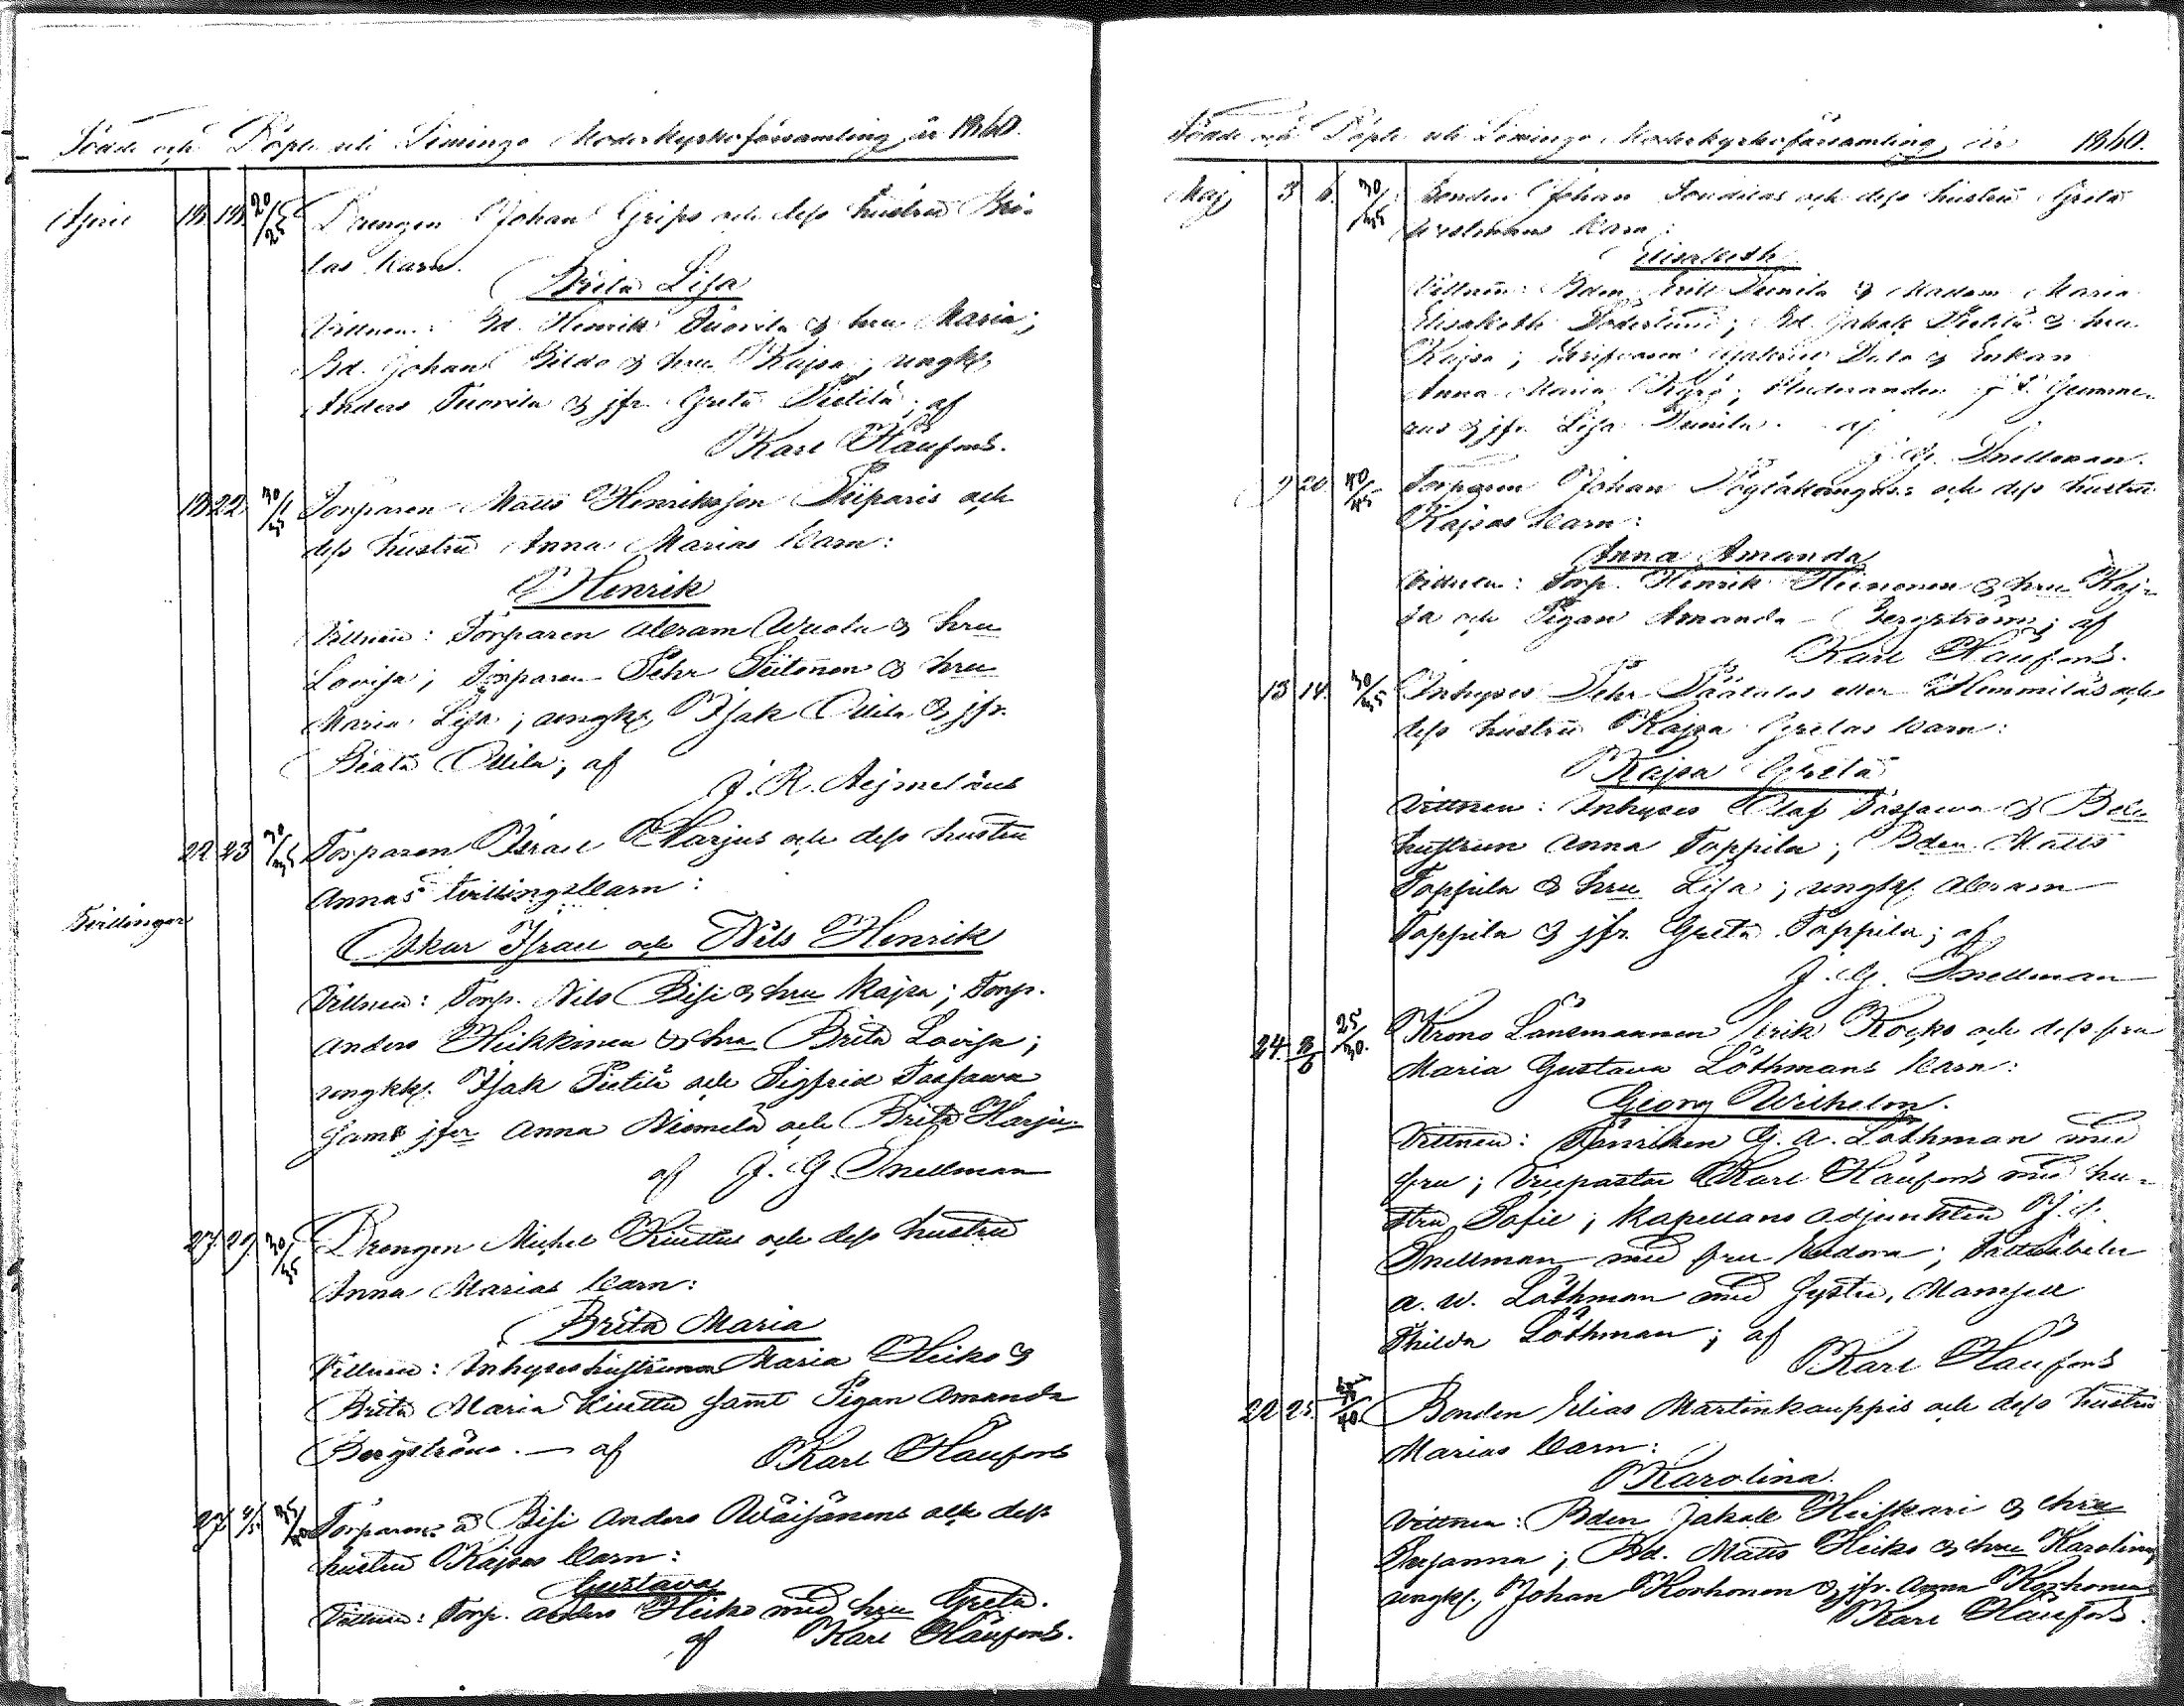 Födde och Döpte uti Limingo Moderkyrkoförsamling år 1860.
April 18. 19. 20/25 Drengen Johan Grips och dess hustru Bri-
tas barn.
Brita Lisa
Vittnen: Bd. Henrik Tuovila & hru Maria;
Bd. Johan Kilda & hru Kajsa, ungk.
Anders Tuovila & jfr. Greta Pietilä; af
Karl Häufens.
13 22. 30/35 Torparen Matts Henriksson Piiparis och
dess hustru Anna Marias barn:
Henrik
Vittnen: Torparen Abram Wuola & hru
Lovisa; Torparen Pehr Siitonen & hru
Maria Lisa; ungk. Isak Ollila & jfr.
Beata Ollila; af
J. R. Aejmelæus
22 23 30/35 Torparen Israel Harjus och dess hustru
Annas tvillingebarn:
Tvillingar
Oskar Israel och Nils Henrik
Vittnen: Torp. Nils Bisi & hru Kajsa; Torp.
Anders Heikkinen & hru Brita Lovisa;
ungkk. Isak Pietilä och Sigfrid Tassawa
samt jfr Anna Niemelä och Brita Harju
af J. G. Snellman
27. 29. 30/35 Drengen Michel Kiuttus och dess hustru
Anna Marias barn:
Brita Maria
Vittnen: Inhyseshustrurna Maria Heiko &
Brita Maria Kiuttu samt Pigan Amanda
Bergström. — af Karl Häufens
27 4/5 Torparens å Bisi Anders Wäisänens och dess
hustru Kajsas barn:
Gustava
Vittnen: Torp. Anders Heiko med hru Greta.
af Karl Häufens.
Födde och Döpte uti Limingo Moderkyrkoförsamling år 1860.
Maj 3 6. 30/35 Bonden Johan och dess hustru Greta
barn:
Elisabeth
Vittnen: Bden Erik Tuovila & Madam Maria
Elisabeth Söderlund; Bd. Jakob Pietilä & hru
Kajsa; Gabriel & Enkan
Anna Maria; Studeranden J. F. Gumme-
rus & jfr Lisa Tuovila. af
J. G. Snellman.
9 20. 40/45 Torparen Johan och dess hustru
Kajsas barn:
Anna Amanda
Vittnen: Torp. Henrik Heinonen & hru Kaj-
sa och Pigan Amanda Bergström; af
Karl Häufens.
13 14. 30/35 Inhyses Pehr Päätalos eller Hemmiläs och
dess hustru Kajsa Gretas barn:
Kajsa Greta
Vittnen: Inhyses Olof Tassawa & Bde
hustrun Anna Toppila; Bden Matts
Toppila & hru Lisa; ungk. Abram
Toppila & jfr. Greta Toppila; af
J. G. Snellman
24. 3/6 25/30. Krono Länsmannen Erik Kocko och dess fru
Maria Gustava Löthmans barn:
Georg Wilhelm.
Vittnen: Fänriken G. A. Löthman med
fru; Vicepastor Karl Häufens med hu-
stru Sofie; Kapellans adjunkten J. G.
Snellman med fru Eudora;
A. W. Löthman med Syster, Mamsell
Thilda Löthman; af
Karl Häufens
22 25. Bonden Elias Martinkauppis och dess hustru
Marias barn:
Karolina.
Vittnen: Bden Jakob Heiskari & hru
Susanna; Bd. Matts Heiko & hru Karolina;
ungk. Johan Korhonen & jfr. Anna Korhonen
Karl Häufens.